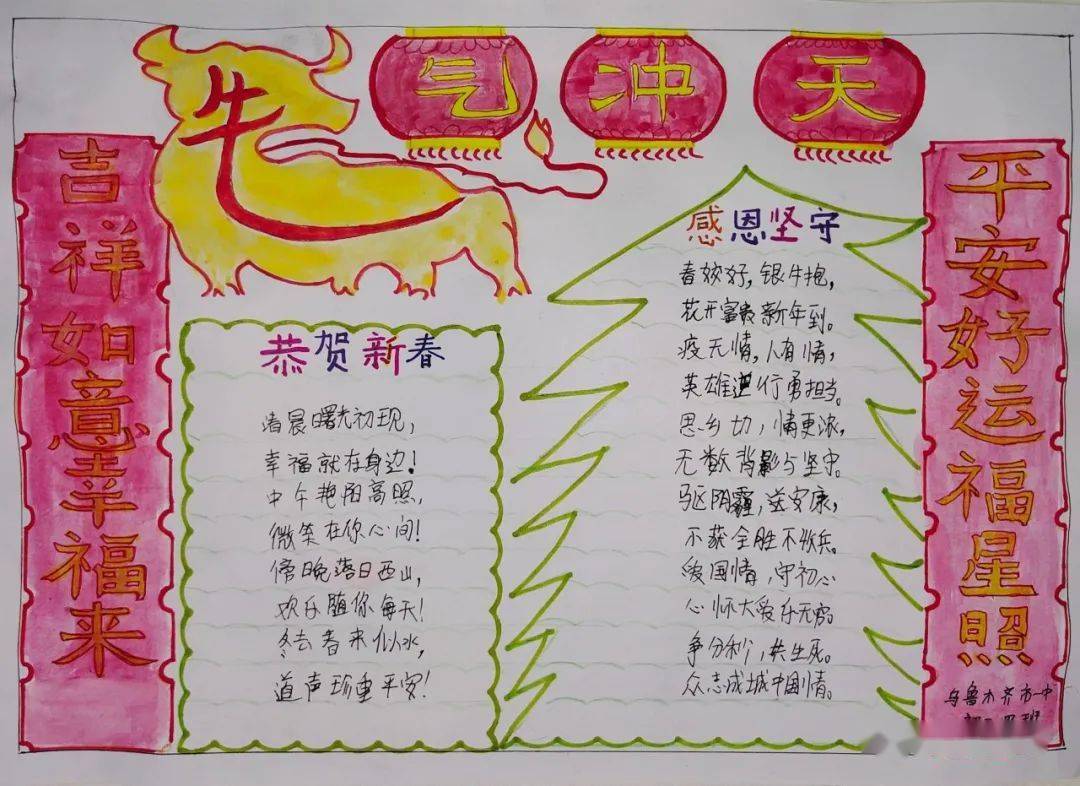 牛气冲天
吉祥如意幸福来
恭贺新春
清晨曙光初现，
幸福就在身边！
中午艳阳高照，
微笑在你心间！
傍晚落日西山，
欢乐随你每天！
冬去春来似水，
道声珍重平安！
感恩坚守
春姣好，银牛抱，
花开富贵新年到。
疫无情，人有情，
英雄逆行勇担当。
思乡切，情更浓，
无数背影与坚守。
驱阴霾，送安康，
不获全胜不收兵。
爱国情，守初心
心怀大爱乐无穷
争分秒，共生死。
众志成城中国情。
平安好运福星照
乌鲁木齐市一中